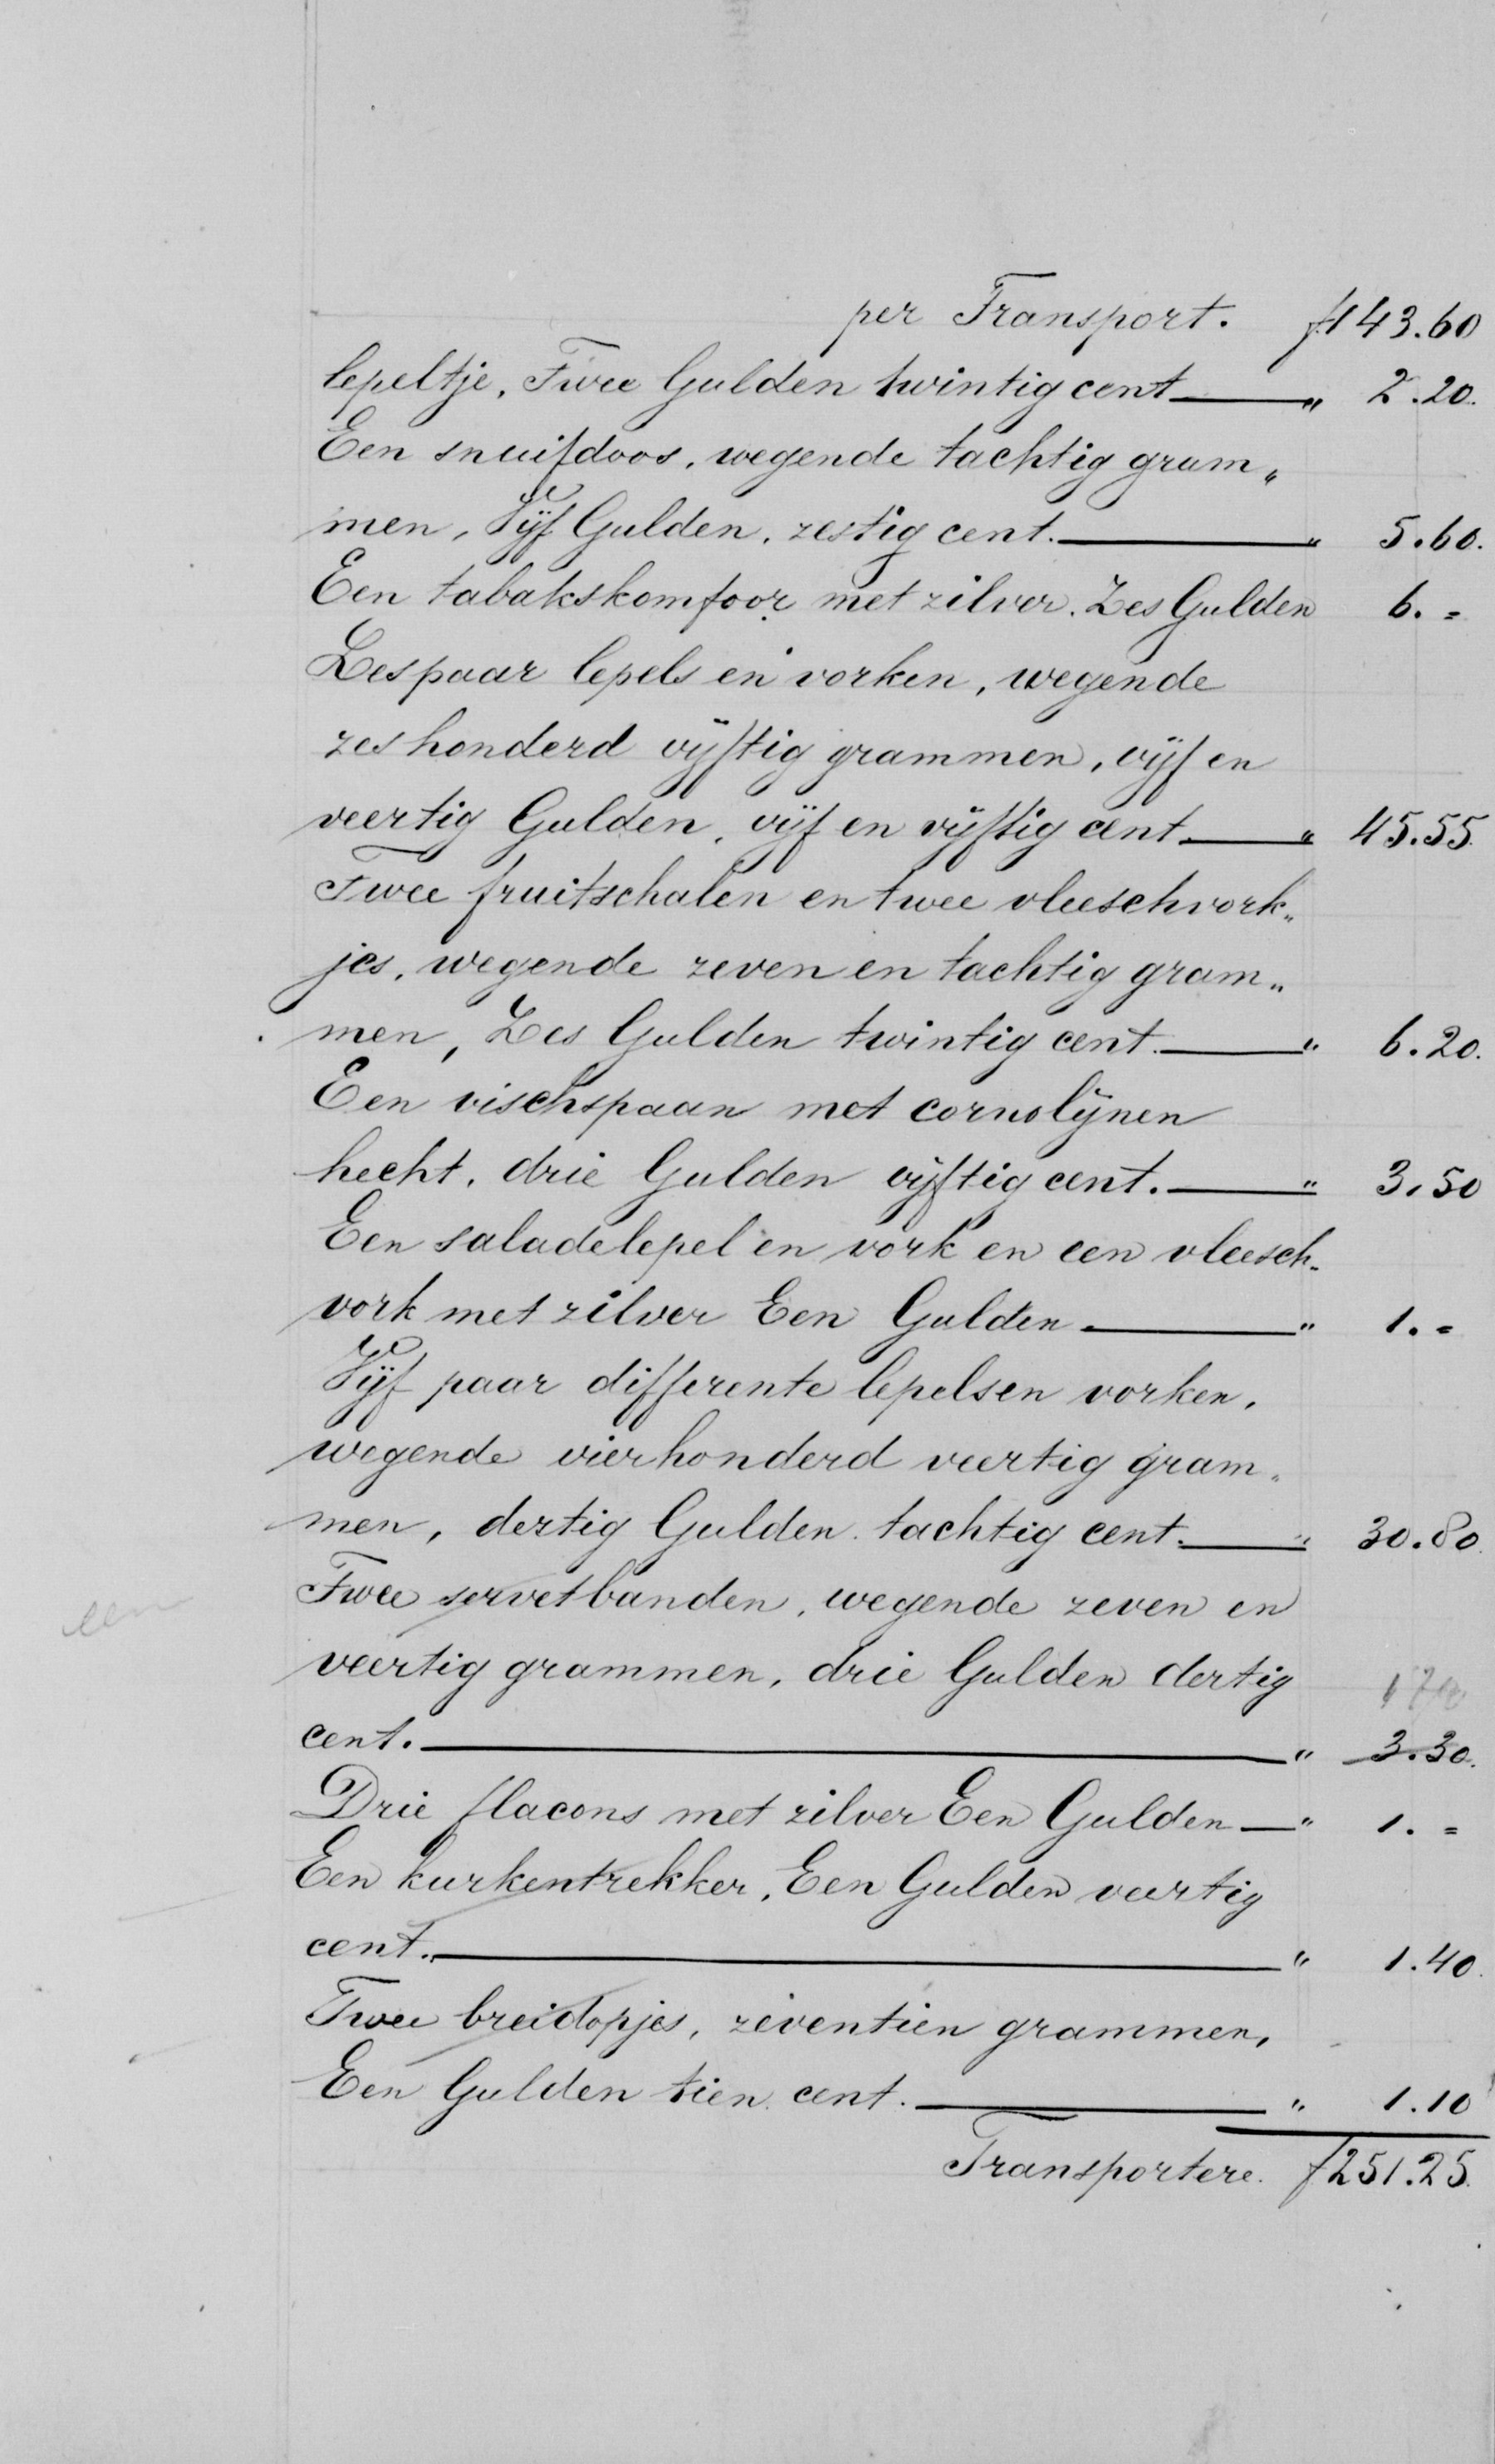 per Transport. f 143.60
lepeltje, Twee Gulden twintig cent — " 2.20.
Een snuifdoos, wegende tachtig gram„
men, Vijf Gulden, zestig cent. — " 5.60.
Een tabakskomfoor met zilver. Zes Gulden 6. =
Zes paar lepels en vorken, wegende
zes honderd vijftig grammen, vijf en
veertig Gulden, vijf en vijftig cent — " 45.55.
Twee fruitschalen en twee vleeschvork„
jes, wegende zeven en tachtig gram„
men, Zes Gulden twintig cent. — " 6.20.
Een vischspaan met cornolijnen
hecht, drie Gulden vijftig cent. — " 3.50
Een saladelepel en vork en een vleesch„
vork met zilver Een Gulden — " 1. =
Vijf paar differente lepels en vorken,
wegende vierhonderd veertig gram„
men, dertig Gulden tachtig cent. — " 30.80.
een Twee servetbanden, wegende zeven en
veertig grammen, drie Gulden dertig
cent. — " 3.30.
Drie flacons met zilver Een Gulden — " 1. =
Een kurkentrekker, Een Gulden veertig
cent. — " 1.40.
Twee breidopjes, zeventien grammen,
Een Gulden tien cent. — " 1.10
Transportere. f 251.25.